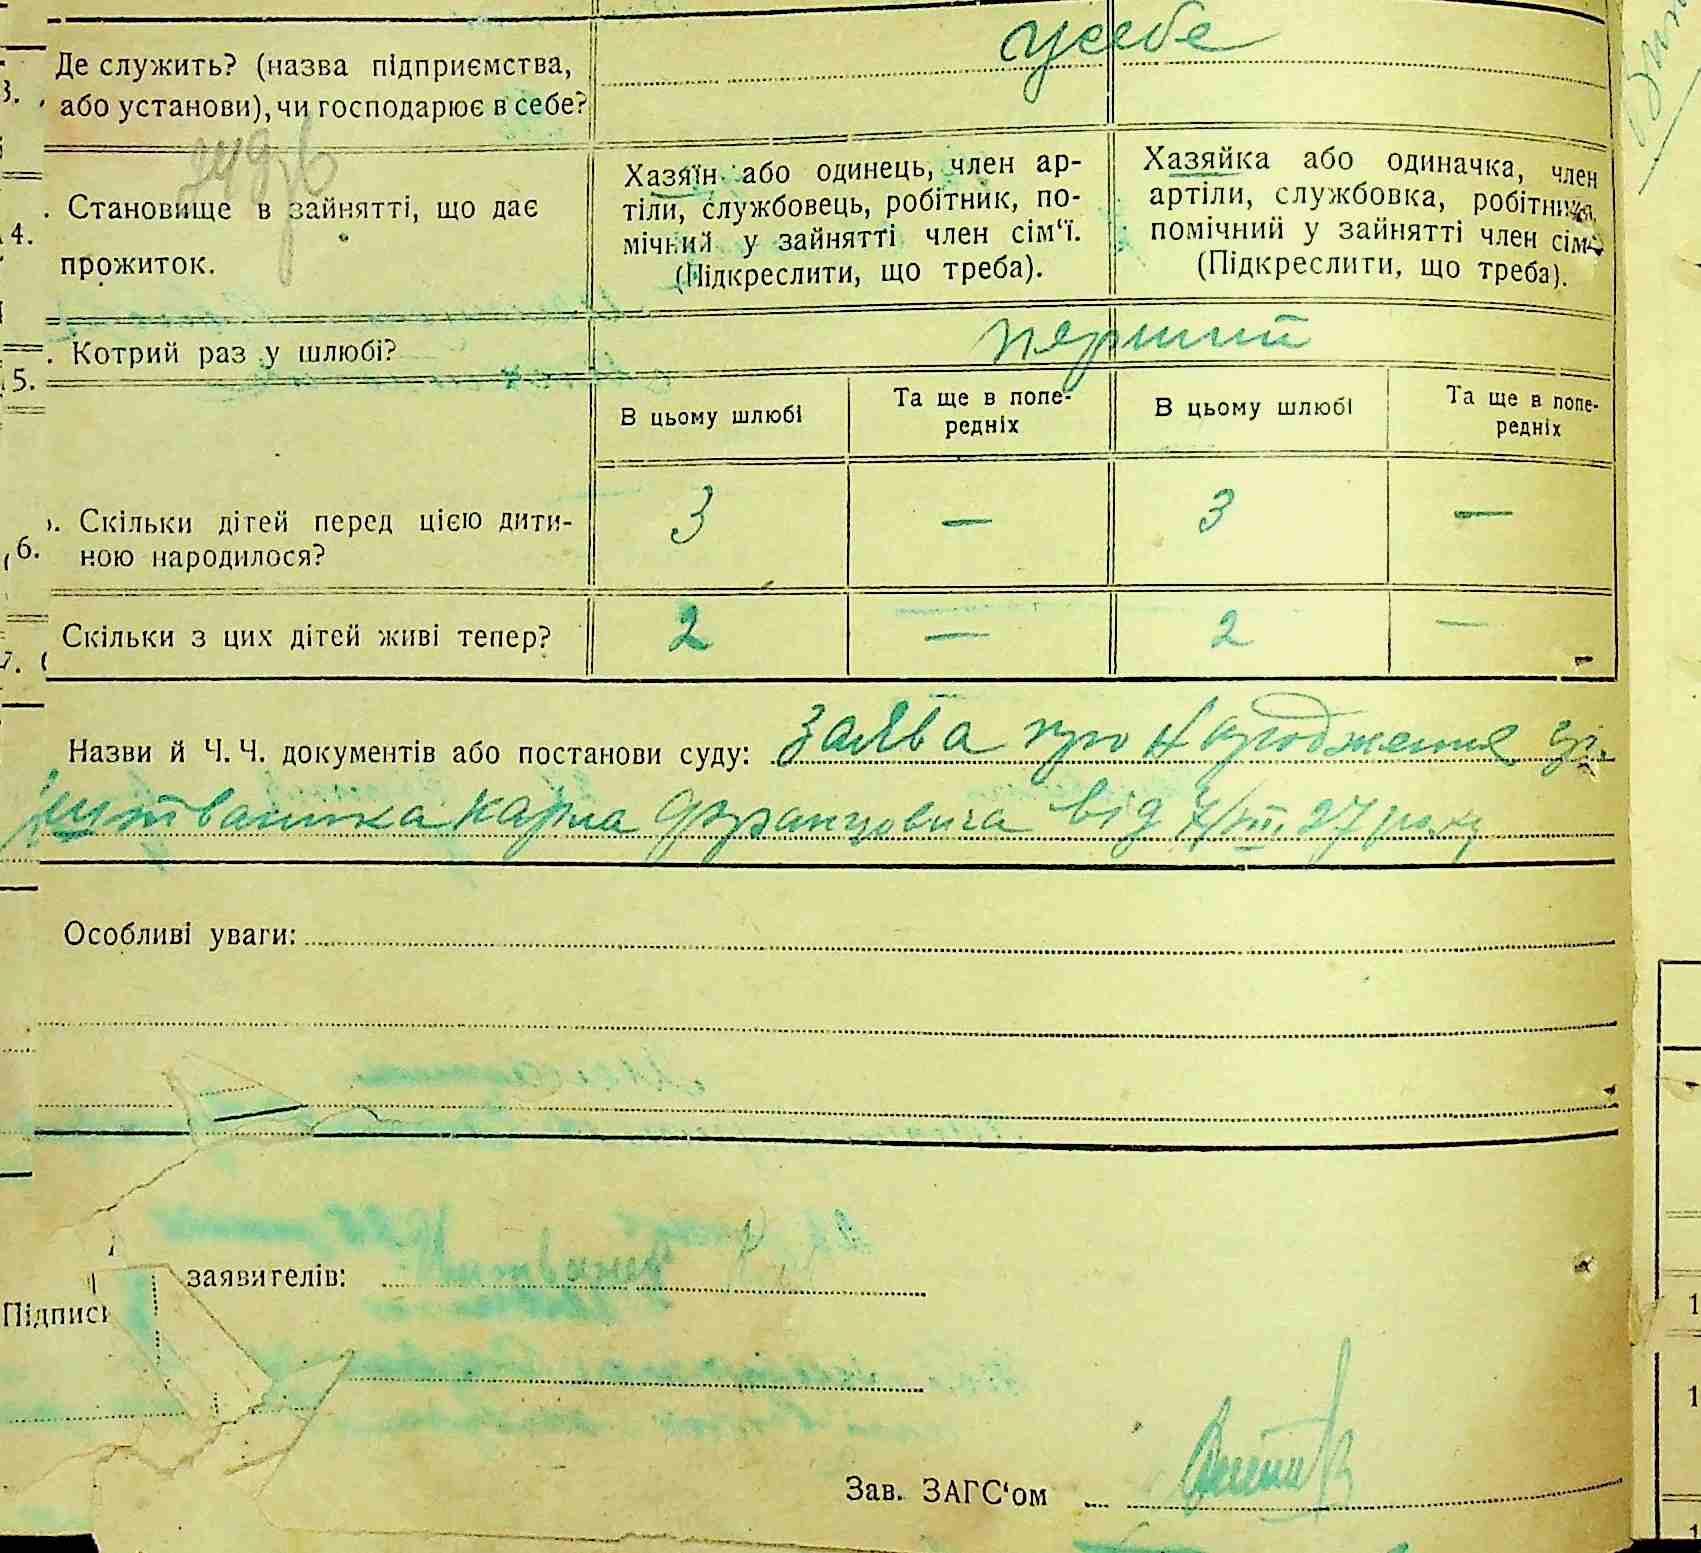 усебе
Де служить? (назва підприємства,
3. або установи), чи господарює в себе?
Хазяїн або одинець, член ар-
тілі, службовець, робітник, по-
мічний у зайнятті член сім‘ї.
(Підкреслити, що треба).
Хазяйка або одиначка, член
артілі, службовка, робітниця,
помічний у зайнятті член сім‘ї
(Підкреслити, що треба).
4. Становище в зайнятті, що дає
прожиток.
5. Котрий раз у шлюбі? перший
В цьому шлюбі
Та ще в попе-
редніх
В цьому шлюбі
Та ще в попе-
редніх
6. Скільки дітей перед цією дити-
ною народилося?
3 — 3 —
7. Скільки з цих дітей живі тепер? 2 — 2 —
Назви й Ч. Ч. документів або постанови суду: заява про народження
Карла Францовича від 27 року
Особливі уваги:
Підписи заявителів:
Зав. ЗАГС‘ом